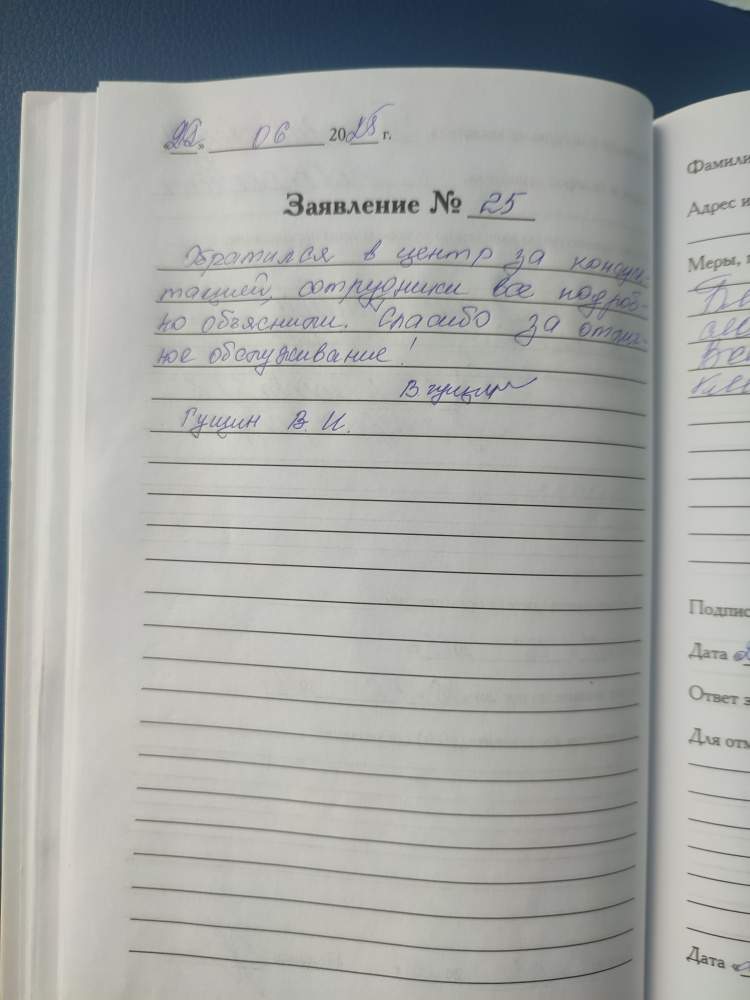 «22» 06 2025 г.
Заявление № 25
Обратился в центр за консуль-
тацией, сотрудники все подроб-
но объяснили. Спасибо за отлич-
ное обслуживание!
Гущин В. И.
Фамили
Адрес и
Меры, п
Подпис
Дата «
Ответ з
Для отм
Дата «